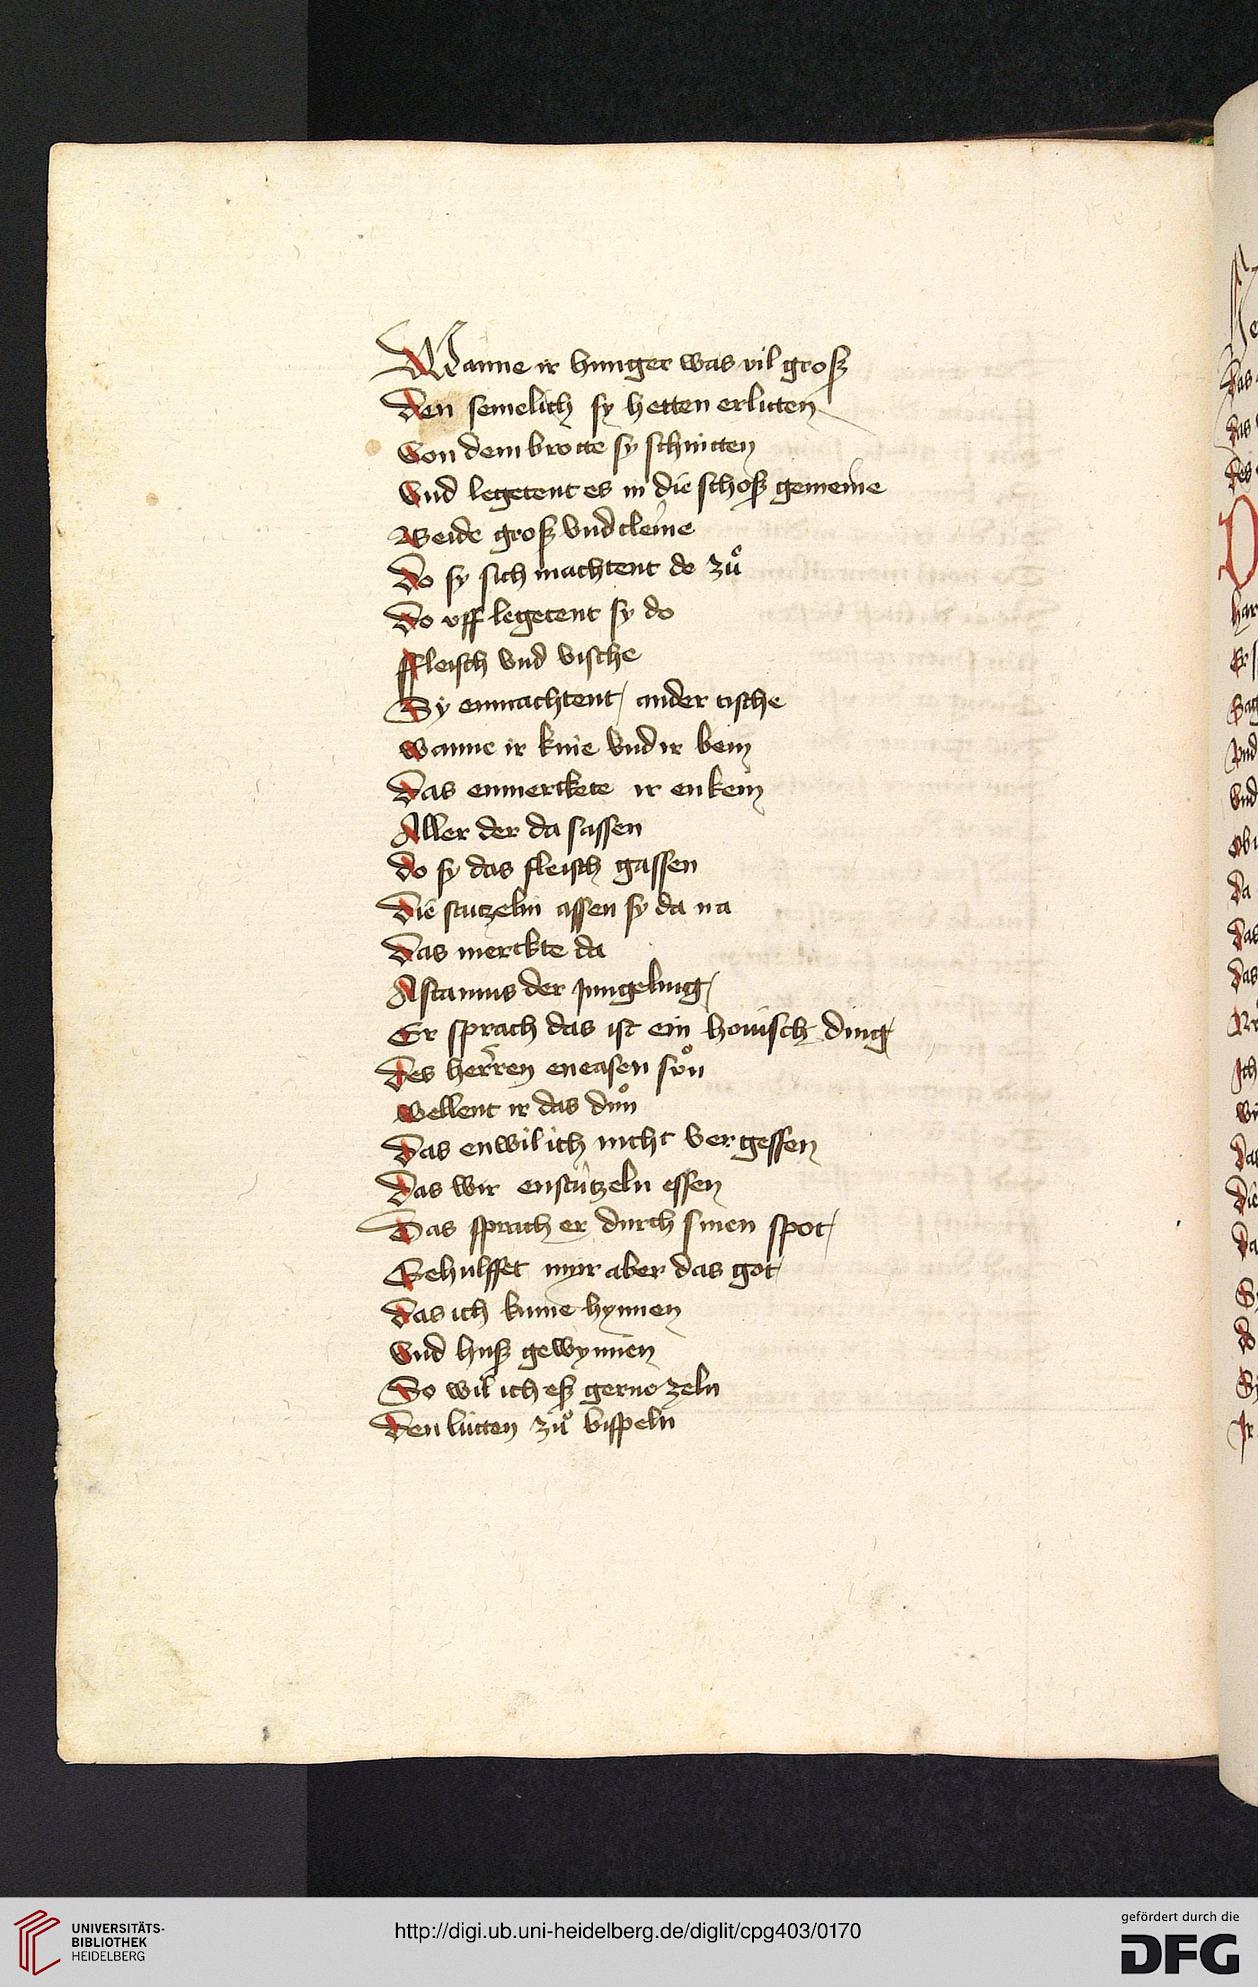 Wanne ir hunger was vil groß
Den semelich sy hetten erlitten
Von dem brotte sy schnitten
Vnd legetent es in die schoß gemeine
Beide groß vnd cleine
Do sy sich machtent do zů
Do vff legetent sy do
Fleisch vnd vische
Sy enmachtent ander tische
Wanne ir knie vnd ir bein
Das enmerckete ir enkein
Aller der da sassen
Do sy das fleisch gassen
Die stutzeln assen sy da na
Das merckte da
Astanius der jungeling
Er sprach das ist ein houisch ding
Des herren eneasen sůn
Wellent ir das důn
Das enwil ich nicht vergessen
Das wir enstutzeln essen
Das sprach er durch sinen spot
Gehulffet myr aber das got
Das ich kume hynnen
Vnd huß gewynnen
So wil ich eß gerno zeln
Den lütten zů bispeln
UNIVERSITÄTS-
BIBLIOTHEK
HEIDELBERG
http://digi.ub.uni-heidelberg.de/diglit/cpg403/0170
gefördert durch die
DFG